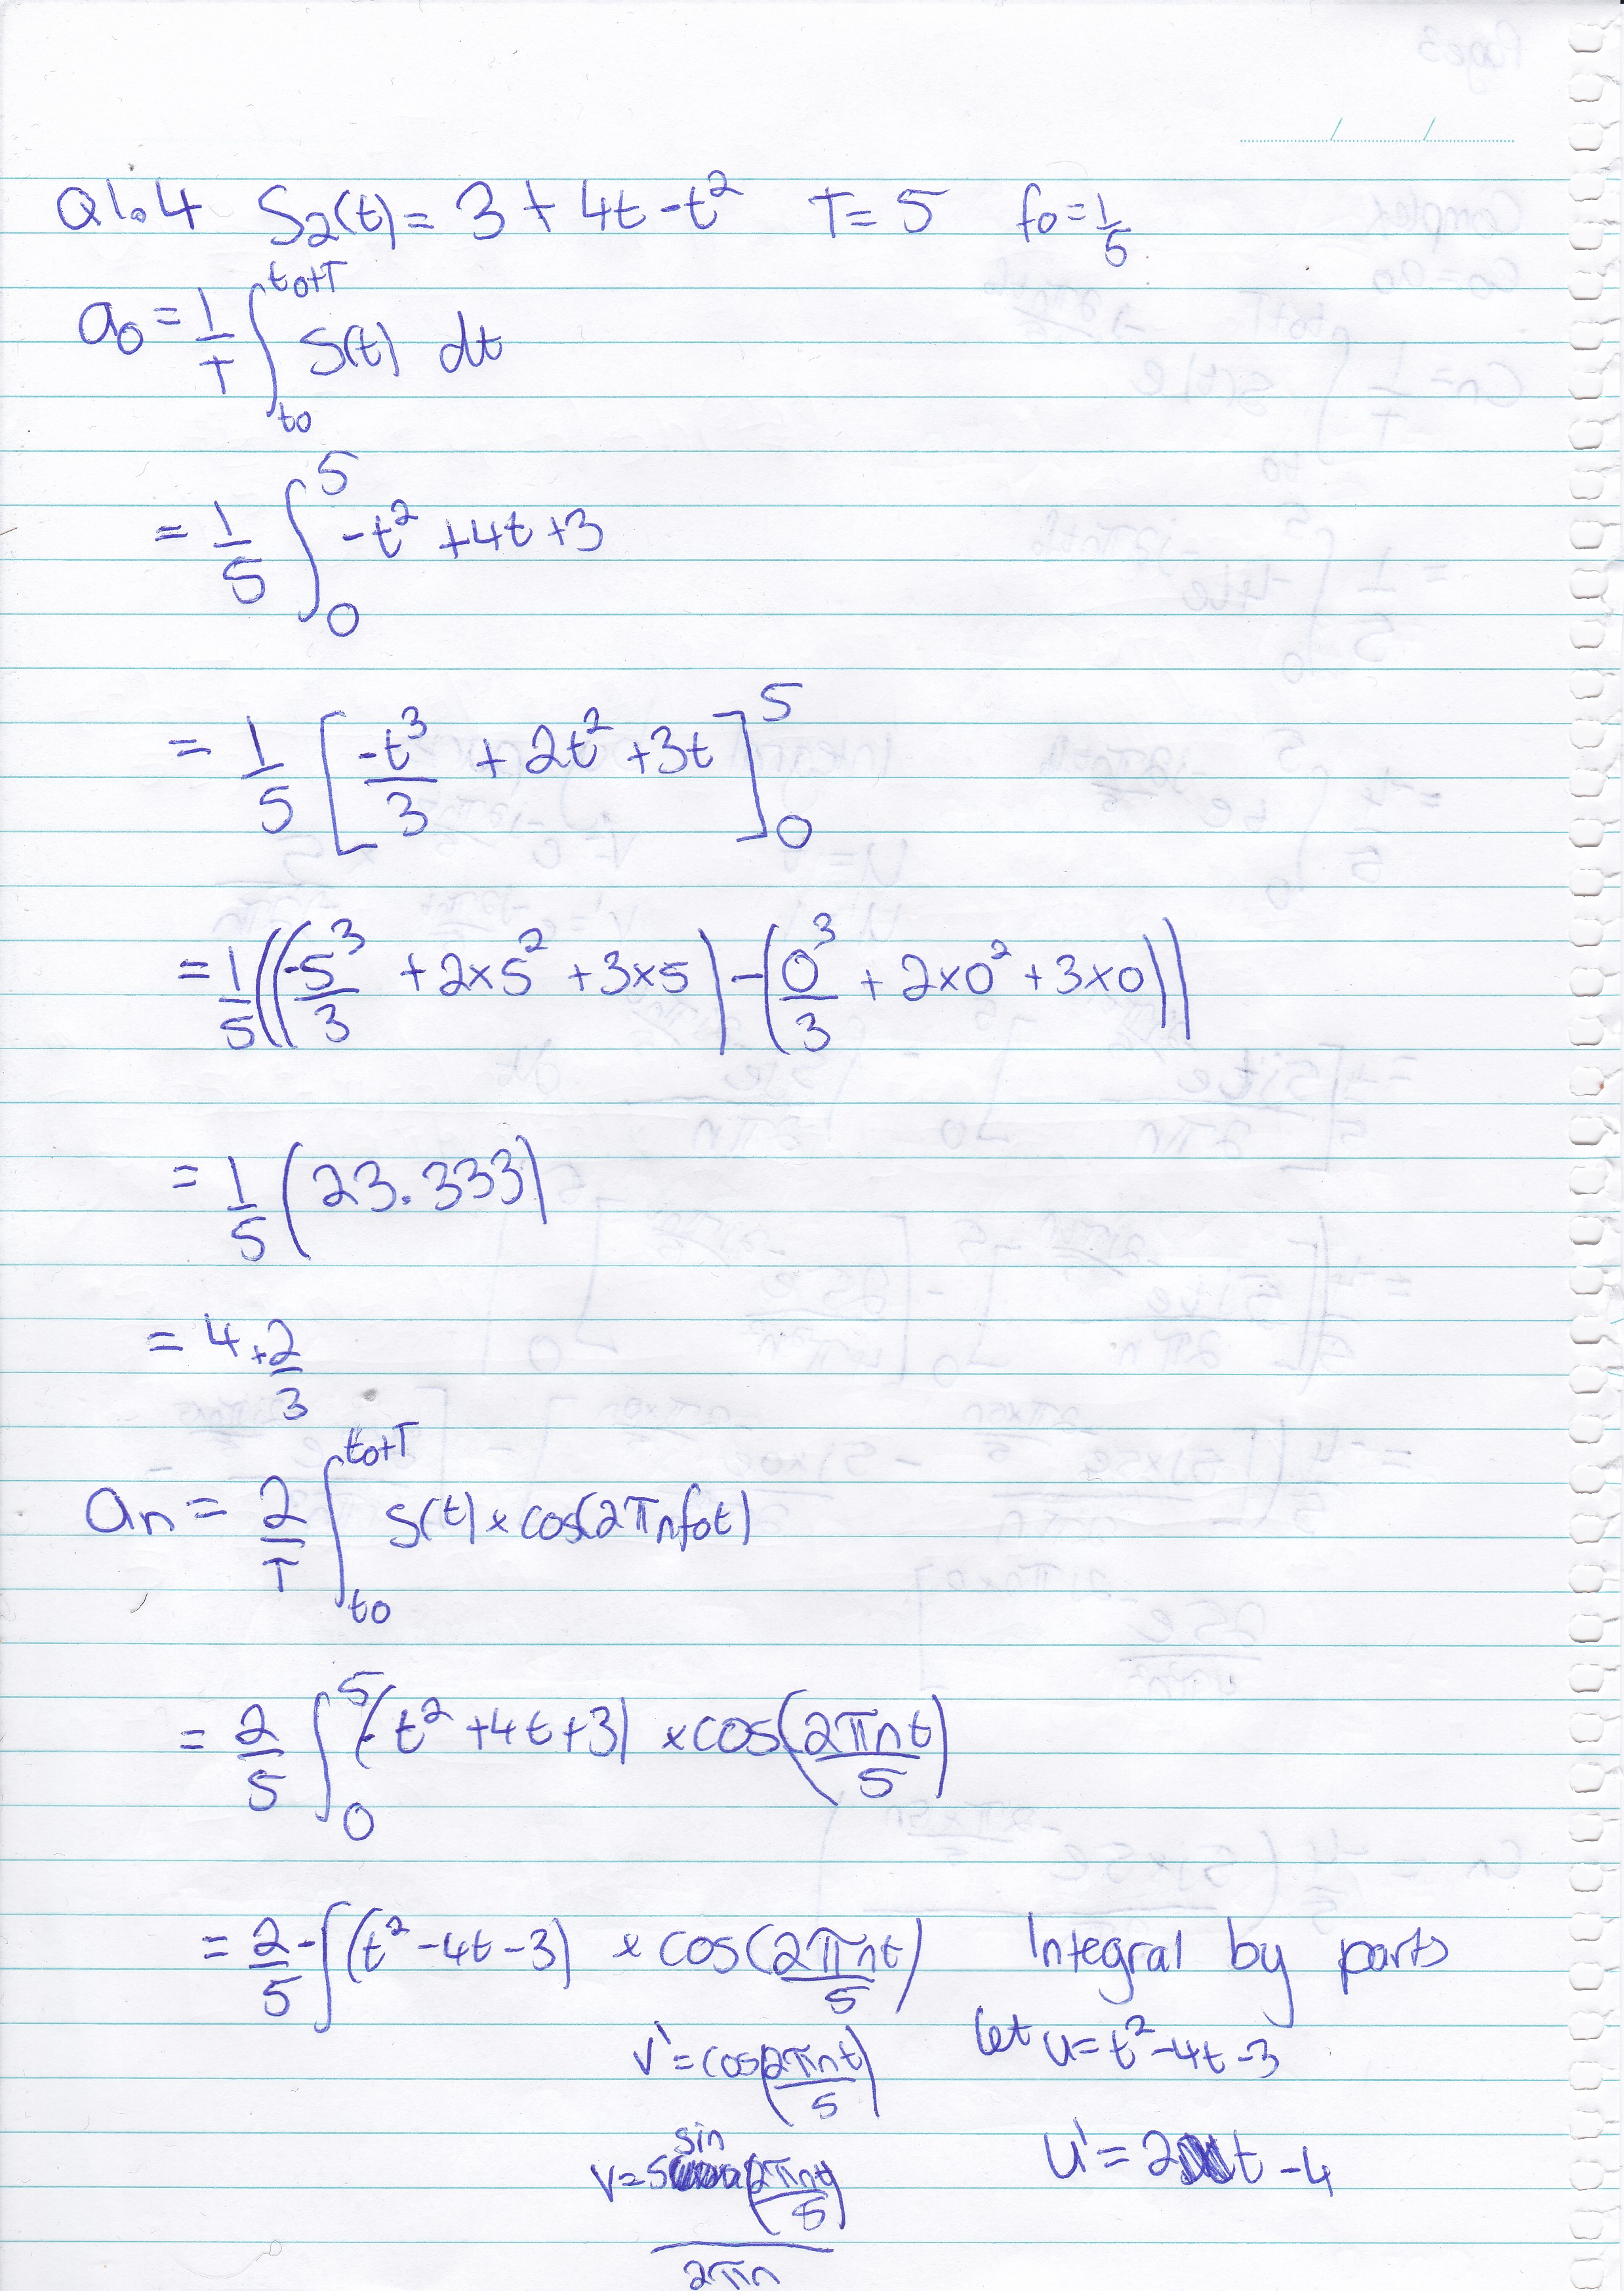 Q1.4 S₂(t) = 3 + 4t - t² T = 5 f₀ = 1/5
a₀ = 1/T ∫_{t₀}^{t₀+T} S(t) dt
= 1/5 ∫_0^5 -t² + 4t + 3
= 1/5 [-t³/3 + 2t² + 3t]_0^5
= 1/5((-5³/3 + 2×5² + 3×5) - (0³/3 + 2×0² + 3×0))
= 1/5 (23.333)
= 4 + 2/3
aₙ = 2/T ∫_{t₀}^{t₀+T} S(t) × cos(2πnf₀t)
= 2/5 ∫_0^5 (-t² + 4t + 3) × cos(2πnt/5)
= 2/5 - ∫(t² - 4t - 3) × cos(2πnt/5) Integral by parts
v' = cos(2πnt/5) let u = t² - 4t - 3
v = 5 sin(2πnt/5)/2πn u' = 2t - 4